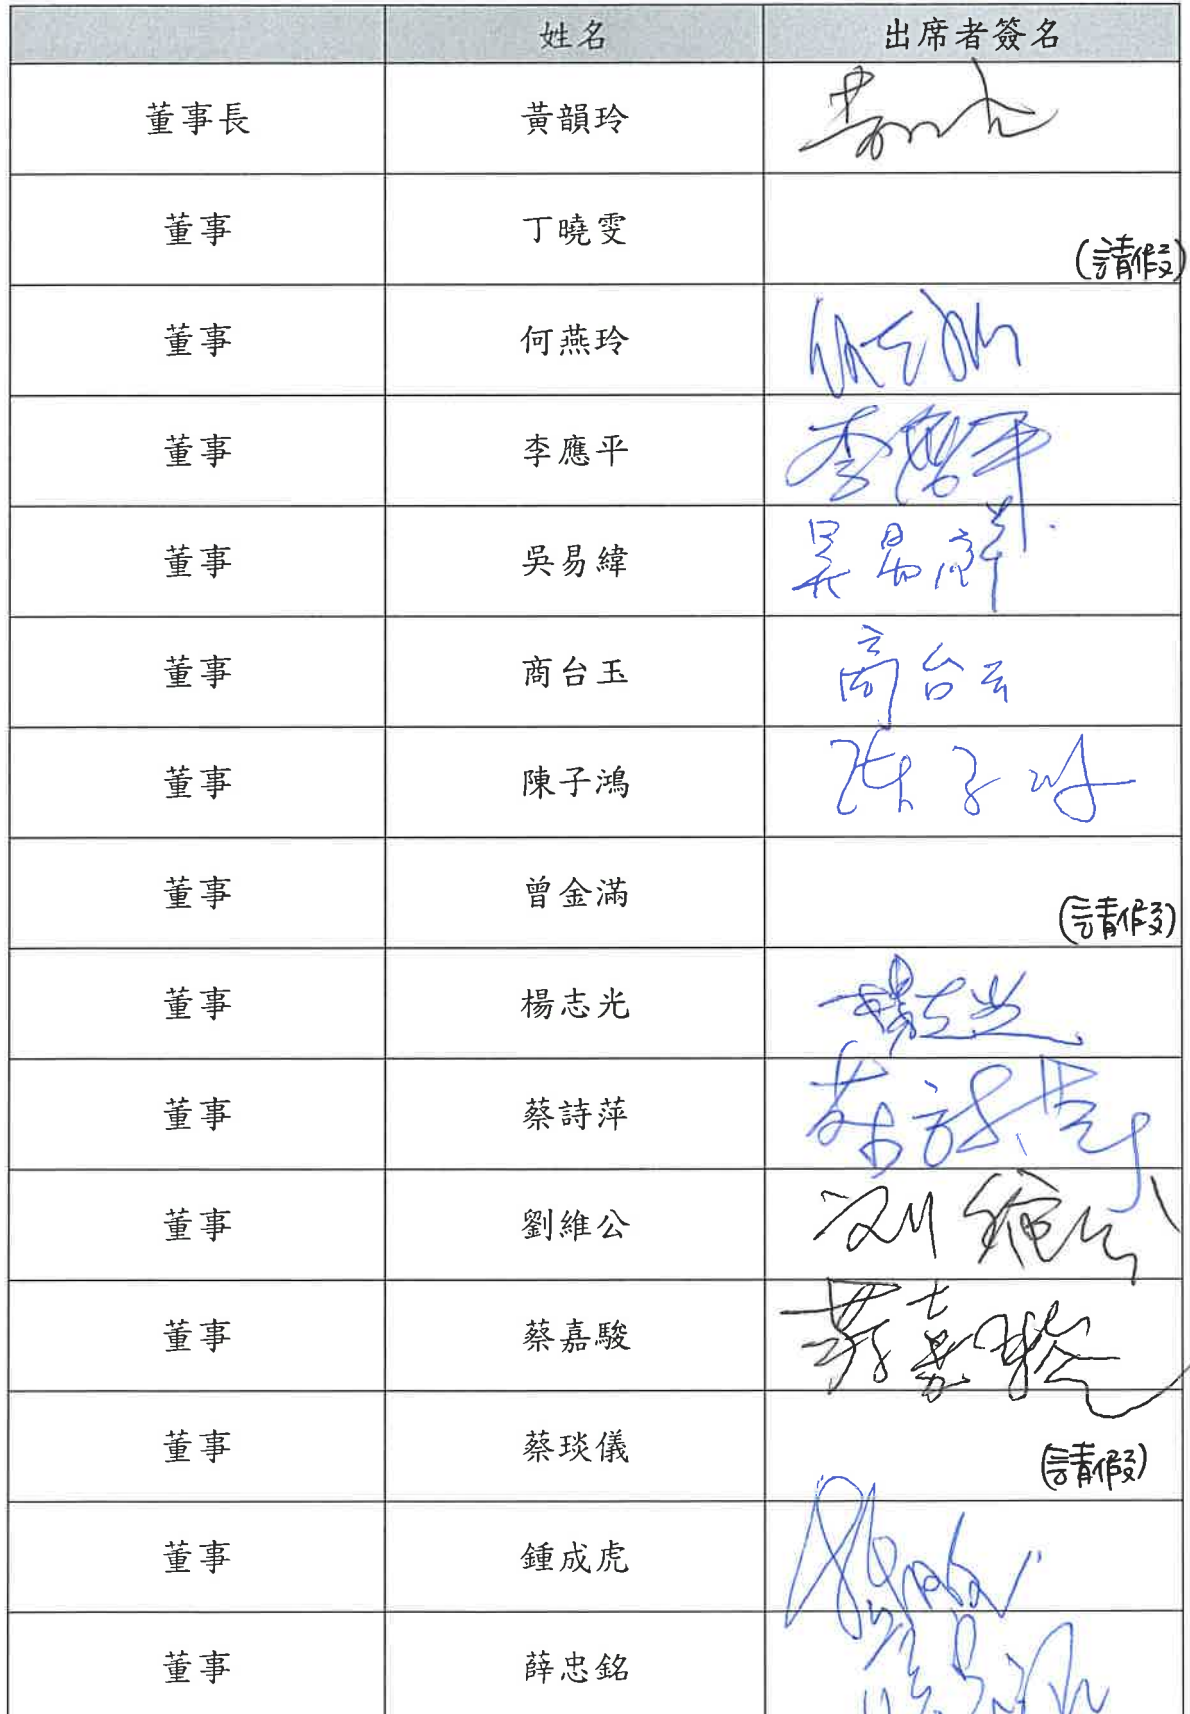 姓名 出席者簽名
董事長 黃韻玲
董事 丁曉雯 (請假)
董事 何燕玲 何燕玲
董事 李應平 李應平
董事 吳易緯 吳易緯
董事 商台玉 商台玉
董事 陳子鴻 陳子鴻
董事 曾金滿 (請假)
董事 楊志光 楊志光
董事 蔡詩萍 蔡詩萍
董事 劉維公 劉維公
董事 蔡嘉駿 蔡嘉駿
董事 蔡琰儀 (請假)
董事 鍾成虎
董事 薛忠銘